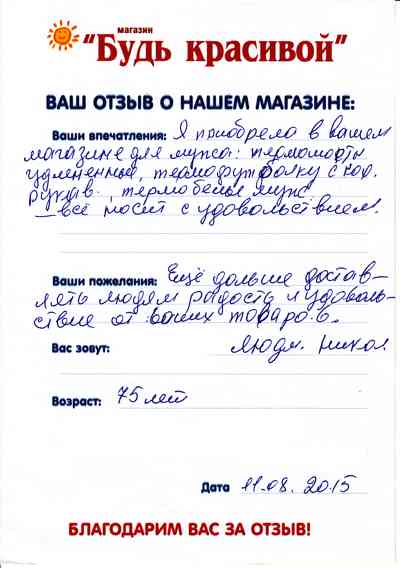 магазин
"Будь красивой"
ВАШ ОТЗЫВ О НАШЕМ МАГАЗИНЕ:
Ваши впечатления: Я приобрела в вашем
магазине для мужа: термошорты
удлиненные, термофутболку с кор.
рукав., термобелье муж.
— всё носит с удовольствием.
Ваши пожелания: Ещё дольше достав-
лять людям радость и удоволь-
ствие от ваших товаров.
Вас зовут: Людм. Никол.
Возраст: 75 лет
Дата 11.08. 2015
БЛАГОДАРИМ ВАС ЗА ОТЗЫВ!